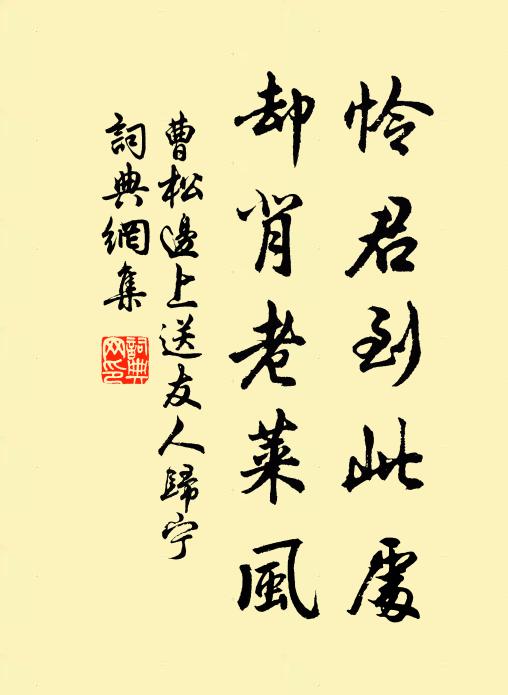 怜君到此處
却肖老萊風
曹松邊上送友人歸宁
詞典網集
詞典
网印